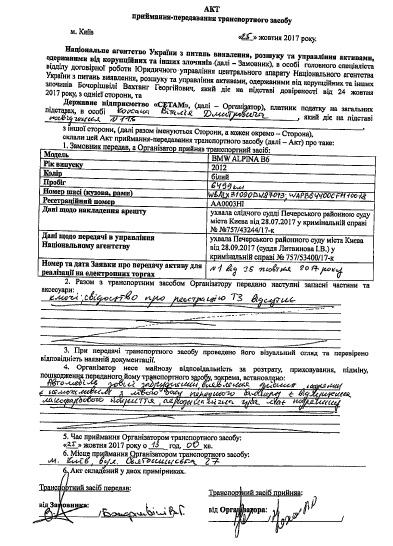 АКТ
приймання-передавання транспортного засобу
м. Київ
«25» жовтня 2017 року.
Національне агентство України з питань виявлення, розшуку та управління активами,
одержаними від корупційних та інших злочинів (далі – Замовник), в особі головного спеціаліста
відділу договірної роботи Юридичного управління центрального апарату Національного агентства
України з питань виявлення, розшуку та управління активами, одержаними від корупційних та інших
злочинів Бочорішвілі Вахтанг Георгійович, який діє на підставі довіреності від 24 жовтня
2017 року, з однієї сторони, та
Державне підприємство «СЕТАМ», (далі – Організатор), платник податку на загальних
підставах, в особі Віталія Дмитровича, який діє на підставі
з іншої сторони, (далі разом іменуються Сторони, а кожен окремо – Сторона),
склали цей Акт приймання-передавання транспортного засобу (далі – Акт) про таке:
1. Замовник передав, а Організатор прийняв транспортний засіб:
Модель BMW ALPINA B6
Рік випуску 2012
Колір білий
Пробіг 6499 км
Номер шасі (кузова, рами)
Реєстраційний номер АА0003НІ
Дані щодо накладення арешту ухвала слідчого судді Печерського районного суду
міста Києва від 28.07.2017 у кримінальній справі
№ №757/43244/17-к
Дані щодо передачі в управління
Національному агентству
ухвала Печерського районного суду міста Києва
від 28.09.2017 (суддя Литвинова І.В.) у
кримінальній справі № 757/53400/17-к
Номер та дата Заявки про передачу активу для
реалізації на електронних торгах
№1 від 25 жовтня 2017 року
2. Разом з транспортним засобом Організатору передано наступні запасні частини та
аксесуари:
ключі, свідоцтво про реєстрацію ТЗ відсутні
3. При передачі транспортного засобу проведено його візуальний огляд та перевірено
відповідність наявній документації.
4. Організатор несе майнову відповідальність за розтрату, приховування, підміну,
пошкодження переданого йому транспортного засобу, зокрема, встановлено:
5. Час приймання Організатором транспортного засобу:
«25» жовтня 2017 року о 13 год. 00 хв.
6. Місце приймання Організатором транспортного засобу:
м. Київ, вул. 27
6. Акт складений у двох примірниках.
Транспортний засіб передав: Транспортний засіб прийняв:
від Замовника: від Організатора: